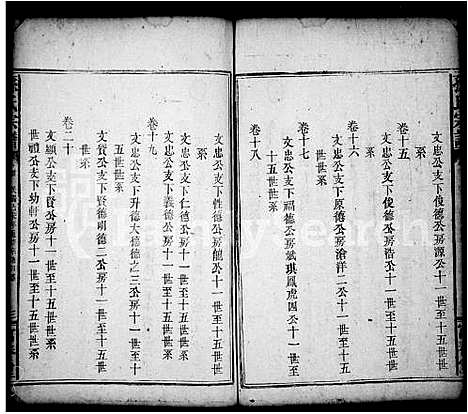 文忠公支下俊德公房源公十一世至十
系
卷十五
文忠公支下俊德公房浩公十一世至十五世世
系
卷十六
文忠公支下原德公房滄洋二公十一世至十五世世系
卷十七
文忠公支下福德公房斌琪鳳虎四公十一世至
十五世世系
卷十八
文忠公支下性德公房能公十一世至十五世世
系
文忠公支下仁德公房十一世至十五世世系
文忠公支下義德公房十一世至十五世世系
卷十九
文忠公支下升德大德德之三公房十一世至十
五世世系
文忠公支下賢德明德二公房十一世至十五世
世系
卷二十
文顯公支下賢公房十一世至十五世世系
世禄公支下幼軒公房十一世至十五世世系